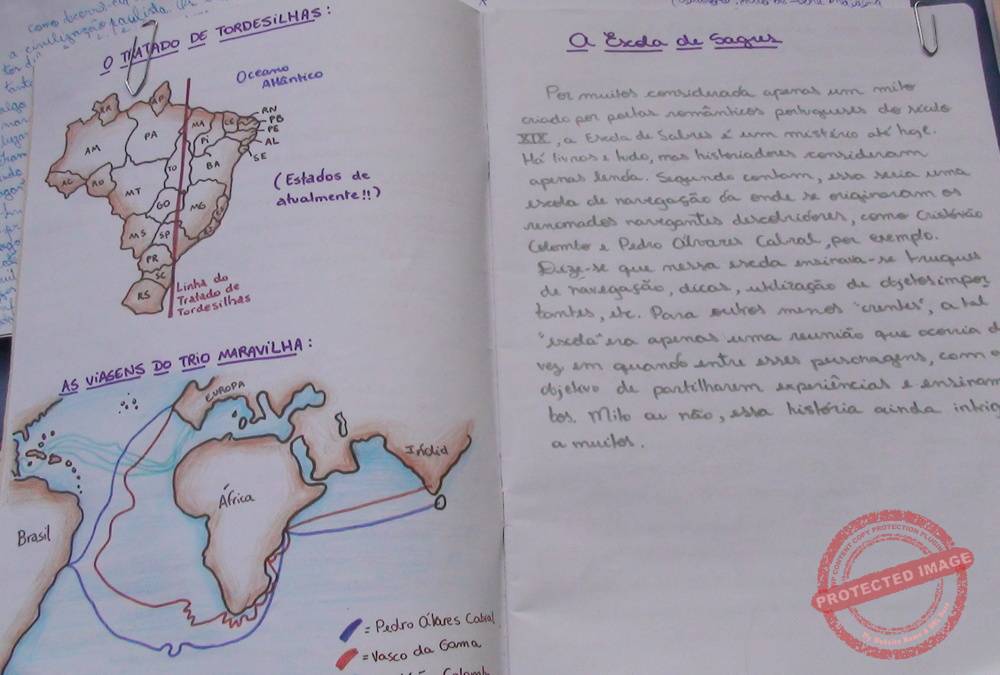 como
a civilização paulista.
O TRATADO DE TORDESILHAS:
Oceano
Atlântico
RR
AP
AM
PA
MA
CE
RN
PB
PE
AL
SE
PI
AC
RO
TO
BA
MT
GO
MG
MS
SP
PR
SC
RS
(Estados de
atualmente!!)
Linha do
Tratado de
Tordesilhas
AS VIAGENS DO TRIO MARAVILHA:
EUROPA
África
Índia
Brasil
= Pedro Álvares Cabral
= Vasco da Gama
Colomb
A Escola de Sagres
Por muitos considerada apenas um mito
criado por poetas românticos portugueses do século
XIX, a Escola de Sabres é um mistério até hoje.
Há livros e tudo, mas historiadores consideram
apenas lenda. Segundo contam, essa seria uma
escola de navegação da onde se originaram os
renomados navegantes descobridores, como Cristóvão
Colombo e Pedro Álvares Cabral, por exemplo.
Dize-se que nessa escola ensinava-se truques
de navegação, dicas, utilização de objetos impor
tantes, etc. Para outros menos "crentes", a tal
"escola" era apenas uma reunião que ocorria d
vez em quando entre esses personagens, com o
objetivo de partilharem experiências e ensinam
tos. Mito ou não, essa história ainda intrig
a muitos.
CONTENT COPY PROTECTION PLUGIN
PROTECTED IMAGE